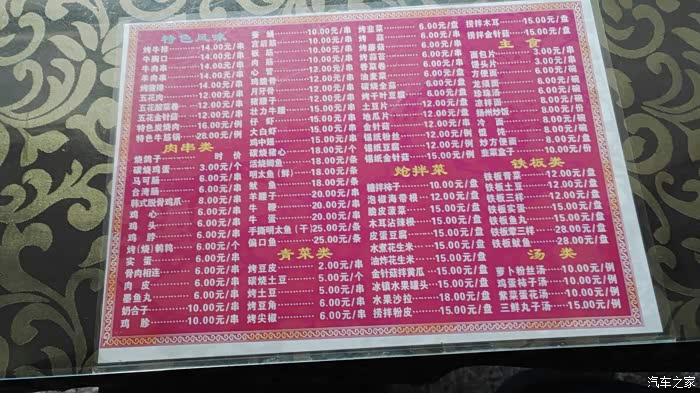 特色风味
烤牛排 14.00元/串
牛胸口 14.00元/串
牛肉串 12.00元/串
羊肉串 12.00元/串
烤猪排 14.00元/串
五花肉 12.00元/串
五花酸菜卷 12.00元/串
五花金针菇 12.00元/串
特色炭烧肉 16.00元/例
特色牛后锅 28.00元/例
肉串类
烧鸽子 时价
碳烧鸡蛋 8.00元/个
马可肠 6.00元/串
台湾肠 6.00元/串
韩式脱骨鸡爪 8.00元/串
鸡心 6.00元/串
鸡头 6.00元/串
鸡脖 6.00元/串
烤(烧)鹌鹑 6.00元/个
实蛋 6.00元/串
骨肉相连 6.00元/串
肉皮 6.00元/串
墨鱼丸 6.00元/串
奶合子 10.00元/串
鸡胗 10.00元/串
蚕蛹 10.00元/串
10.00元/串
板筋 10.00元/串
心管 12.00元/串
鸡脆骨 12.00元/串
月牙骨 12.00元/串
猪腰子 12.00元/串
壮力牛腰 15.00元/串
干虾 15.00元/串
大白虾 15.00元/串
鸡中翅 15.00元/串
碳烧猪心 18.00元/个
活烧鲫鱼 18.00元/条
明太鱼(鲜) 18.00元/条
鱿鱼 18.00元/串
羊腰子 20.00元/串
牛鞭 20.00元/串
牛蛋 20.00元/串
手撕明太鱼(干) 25.00元/条
偏口鱼 25.00元/条
青菜类
烤豆皮 2.00元/串
碳烧土豆 5.00元/个
烤土豆 5.00元/串
烤豆角 6.00元/串
烤尖椒 6.00元/串
烤韭菜 6.00元/盘
烤蒜 6.00元/盘
烤蘑菇 6.00元/盘
烤蒜苔 6.00元/盘
香菜卷 6.00元/盘
油麦菜 6.00元/盘
碳烧全茄 6.00元/盘
烤干豆腐 8.00元/盘
土豆片 10.00元/盘
地瓜片 10.00元/盘
金针菇 12.00元/盘
锡纸粉丝 12.00元/盘
锡纸豆腐 12.00元/盘
锡纸金针菇 15.00元/盘
炝拌菜
糖拌柿子 10.00元/盘
泡椒海带根 12.00元/盘
脆皮蛋菜 15.00元/盘
木耳沾辣根 15.00元/盘
皮蛋豆腐 15.00元/盘
水煮花生米 15.00元/盘
油炸花生米 15.00元/盘
金针菇拌黄瓜 15.00元/盘
冰镇水果罐头 15.00元/盘
水果沙拉 18.00元/盘
捞拌粉皮 15.00元/盘
捞拌木耳 15.00元/盘
捞拌金针菇 15.00元/盘
主食
面包片 3.00元/串
馒头片 3.00元/串
方便面 6.00元/碗
龙须面 6.00元/碗
疙瘩汤 6.00元/碗
凉拌面 8.00元/碗
扬州炒饭 8.00元/份
冷面 10.00元/碗
馄饨 8.00元/碗
炒方便面 8.00元/份
韭菜盒子 10.00元/份
铁板类
铁板青菜 12.00元/盘
铁板土豆 12.00元/盘
铁板三样 12.00元/盘
铁板实蛋 15.00元/盘
铁板鱼丸 15.00元/盘
铁板荤三样 28.00元/盘
铁板鱿鱼 28.00元/盘
汤类
萝卜粉丝汤 10.00元/例
鸡蛋柿子汤 10.00元/例
紫菜蛋花汤 10.00元/例
三鲜丸子汤 15.00元/例
汽车之家